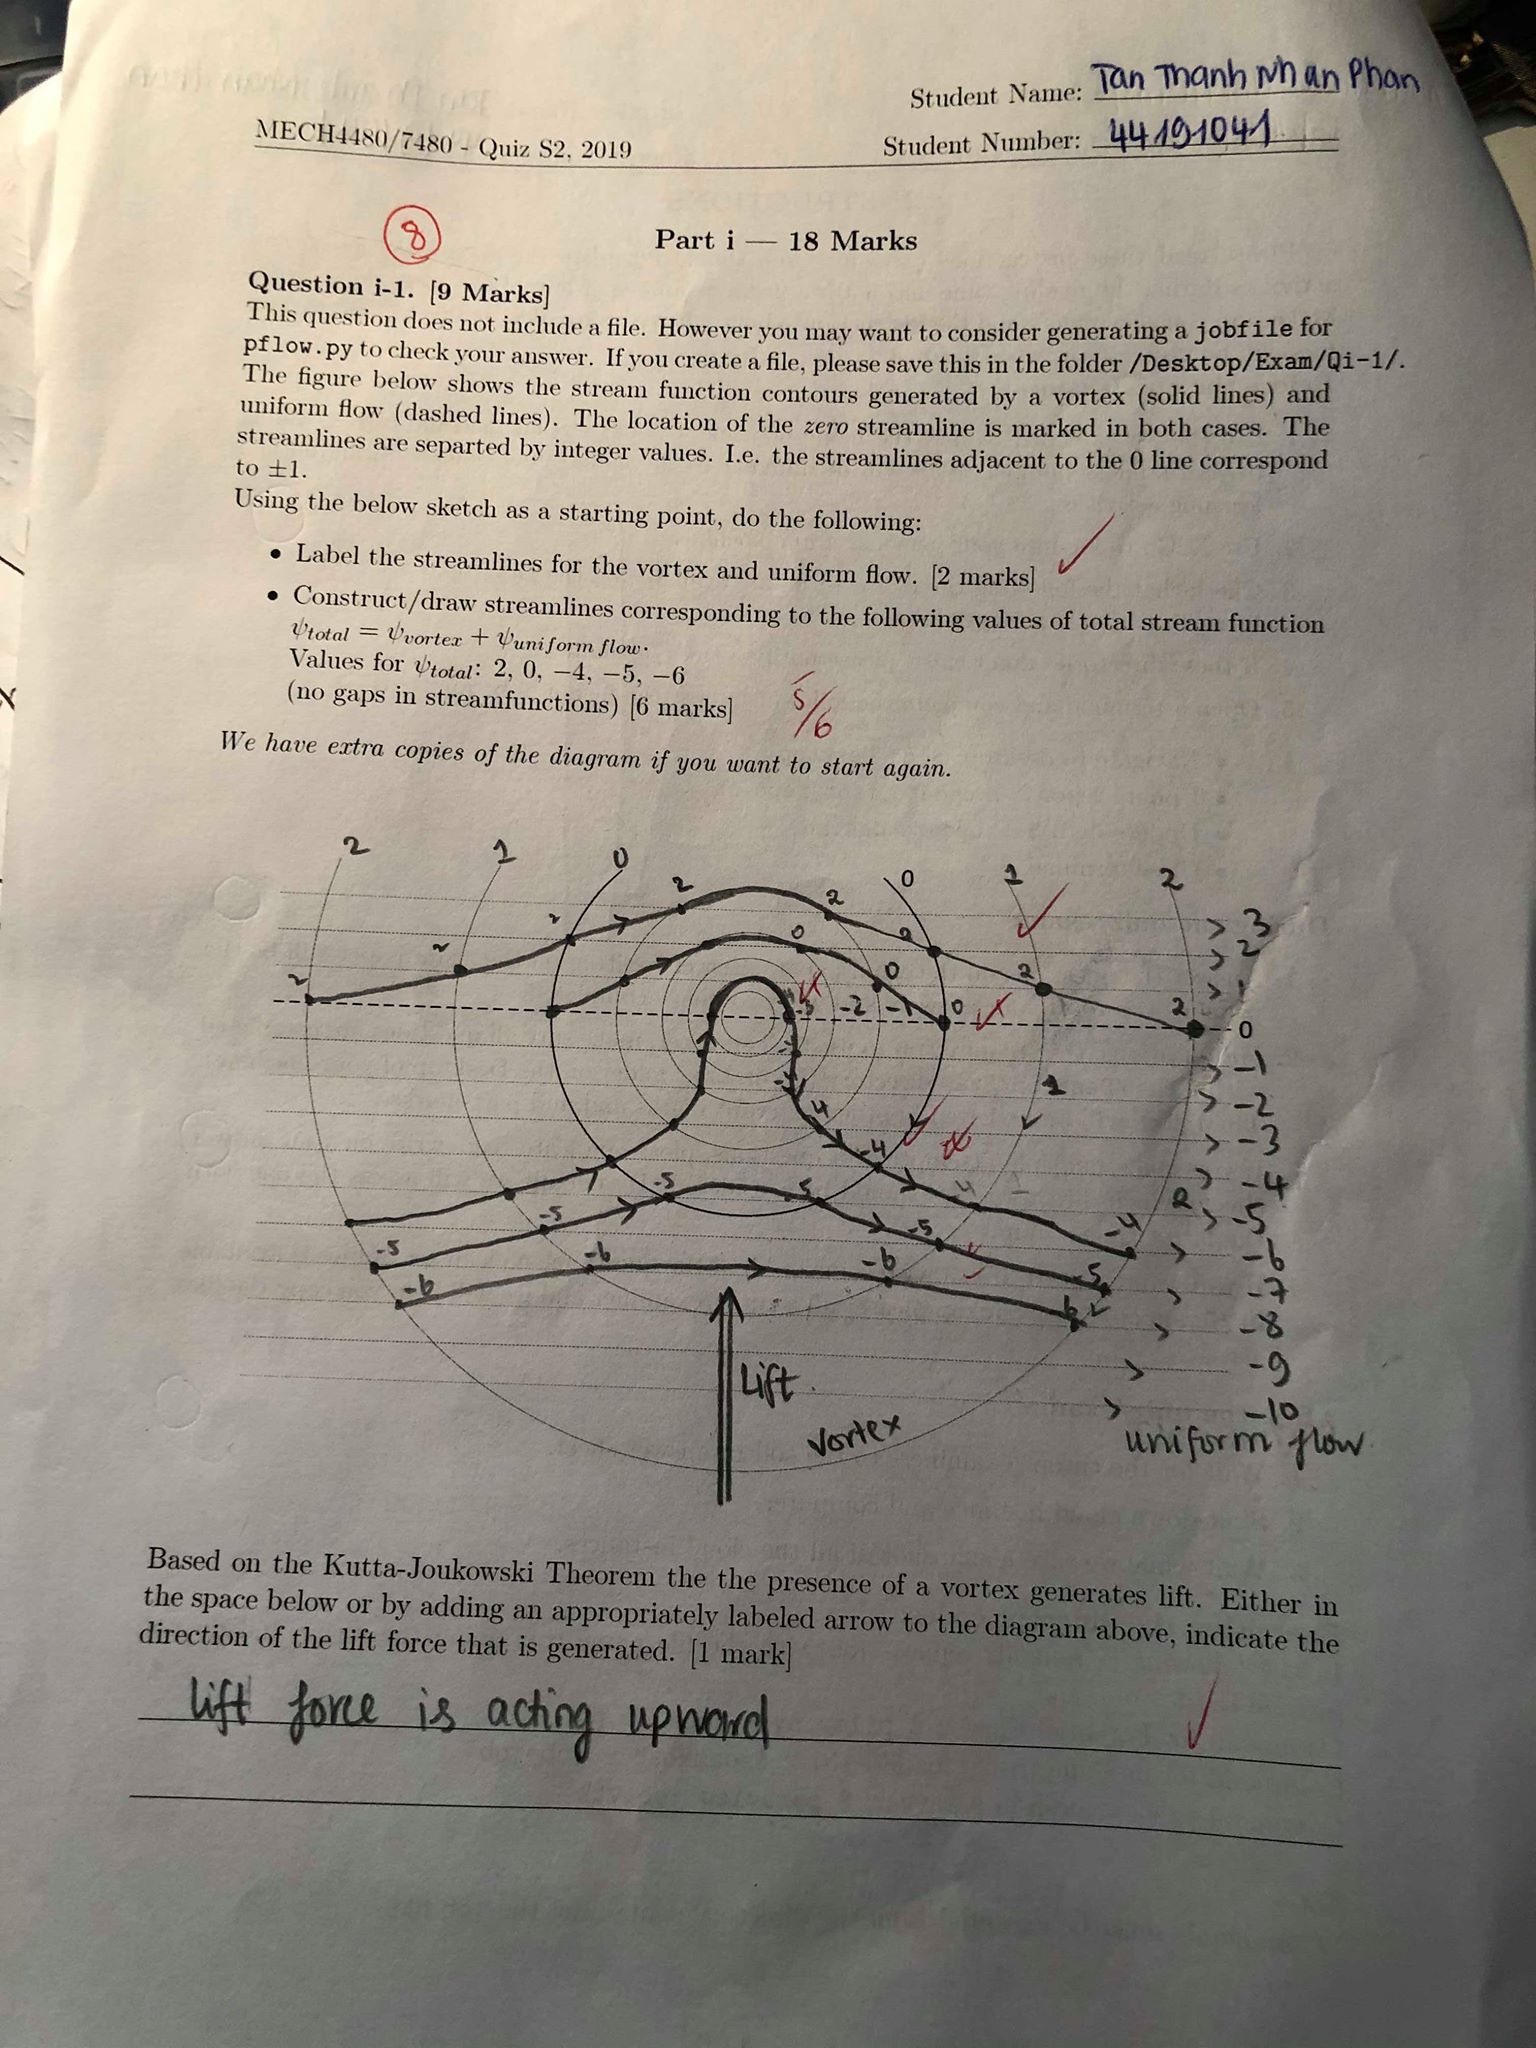 Student Name: Tan Thanh Nhan Phan
MECH4480/7480 - Quiz S2, 2019
Student Number: 44191041
8
Part i — 18 Marks
Question i-1. [9 Marks]
This question does not include a file. However you may want to consider generating a jobfile for
pflow.py to check your answer. If you create a file, please save this in the folder /Desktop/Exam/Qi-1/.
The figure below shows the stream function contours generated by a vortex (solid lines) and
uniform flow (dashed lines). The location of the zero streamline is marked in both cases. The
streamlines are separted by integer values. I.e. the streamlines adjacent to the 0 line correspond
to ±1.
Using the below sketch as a starting point, do the following:
• Label the streamlines for the vortex and uniform flow. [2 marks]
• Construct/draw streamlines corresponding to the following values of total stream function
ψtotal = ψvortex + ψuniform flow.
Values for ψtotal: 2, 0, −4, −5, −6
(no gaps in streamfunctions) [6 marks]
5/6
We have extra copies of the diagram if you want to start again.
2 1 0 0 1 2
2 2 3
2 2 2 2
2 0 2 1
2 0 -3 -2 -1 0 2 0
-1
1 -2
4 -3
-4 -4
-5 5 4 2 -5
-5 -5 -4 -6
-5 -6 -6 -5 -7
-6 6 -8
Lift -9
-10
vortex uniform flow
Based on the Kutta-Joukowski Theorem the the presence of a vortex generates lift. Either in
the space below or by adding an appropriately labeled arrow to the diagram above, indicate the
direction of the lift force that is generated. [1 mark]
lift force is acting upward